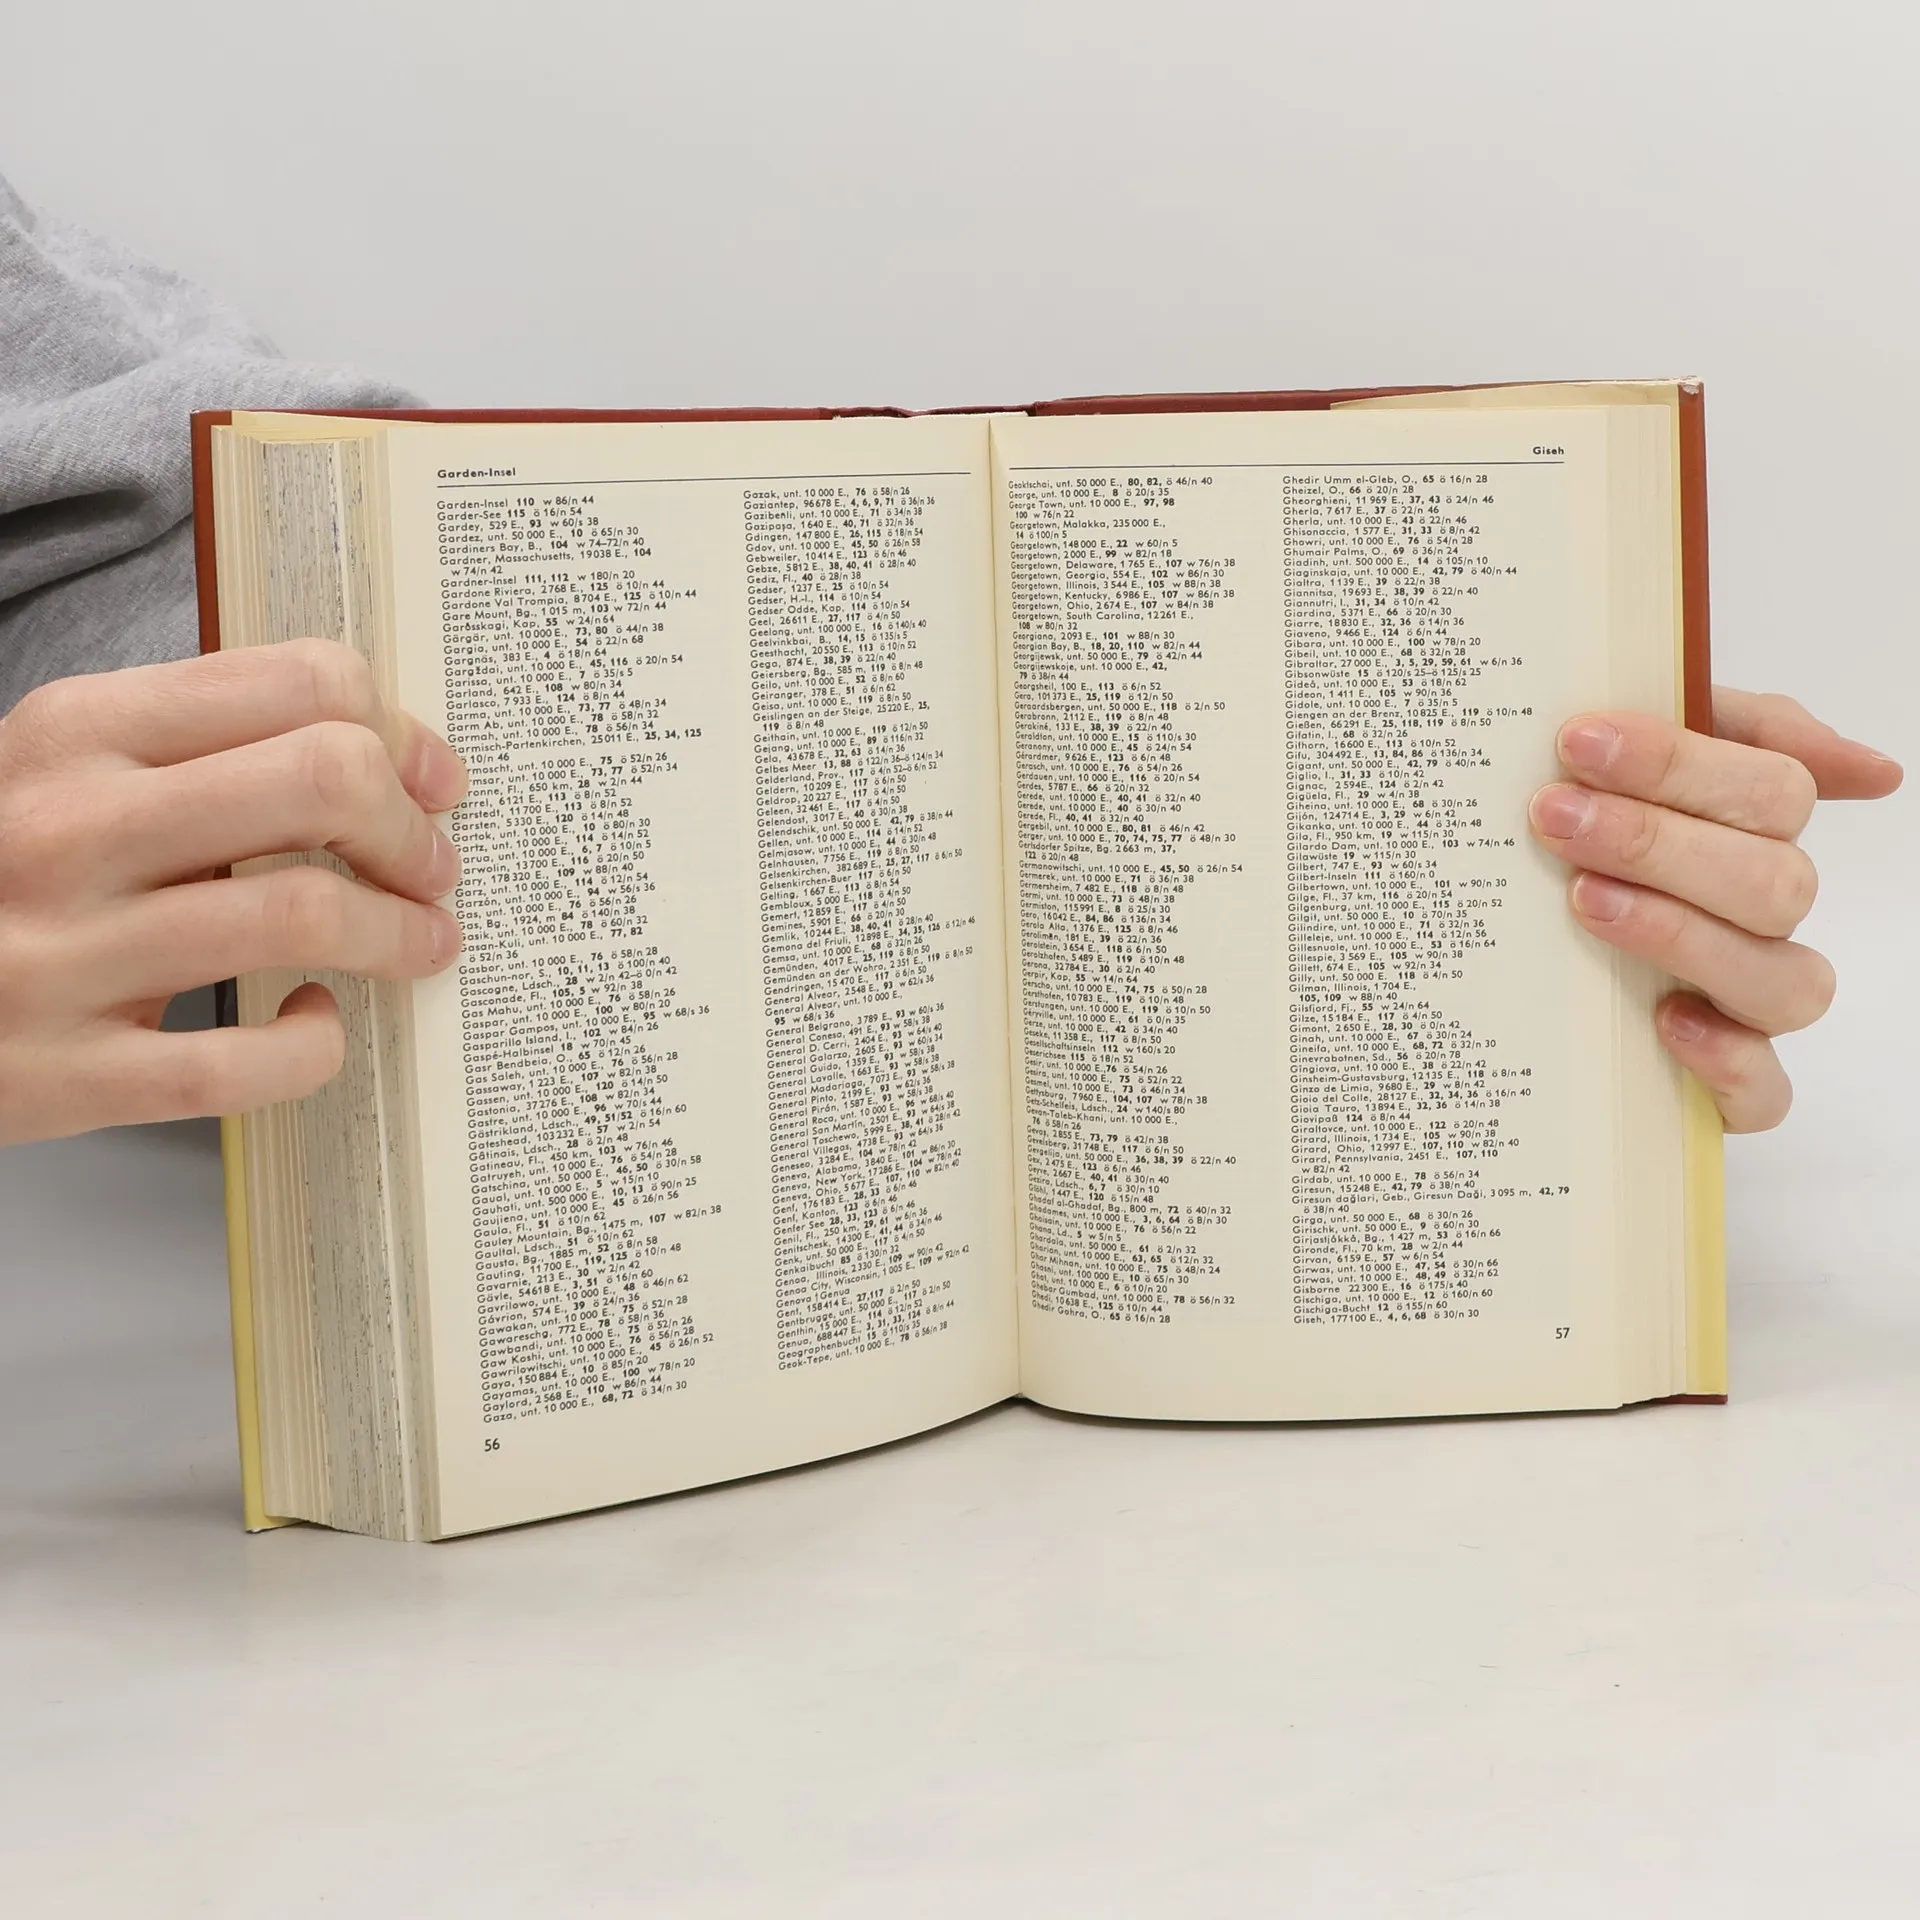 Garden-Insel
Garden-Insel 110 w 86/n 44
Garder-See 115 ö 16/n 54
Gardey, 529 E., 93 w 60/s 38
Gardez, unt. 50 000 E., 10 ö 65/n 30
Gardiners Bay, B., 104 w 74–72/n 40
Gardner, Massachusetts, 19038 E., 104
w 74/n 42
Gardner-Insel 111, 112 w 180/n 20
Gardone Riviera, 2768 E., 125 ö 10/n 44
Gardone Val Trompia, 8704 E., 125 ö 10/n 44
Gare Mount, Bg., 1 015 m, 103 w 72/n 44
Garðsskagi, Kap, 55 w 24/n 64
Gärgär, unt. 10 000 E., 73, 80 ö 44/n 38
Gargia, unt. 10 000 E., 54 ö 22/n 68
Gargnäs, 383 E., 4 ö 18/n 64
Gargždai, unt. 10 000 E., 45, 116 ö 20/n 54
Garissa, unt. 10 000 E., 7 ö 35/s 5
Garland, 642 E., 108 w 80/n 34
Garlasco, 7 933 E., 124 ö 8/n 44
Garma, unt. 10 000 E., 73, 77 ö 48/n 34
Garm Ab, unt. 10 000 E., 78 ö 58/n 32
Garmah, unt. 10 000 E., 78 ö 56/n 34
armisch-Partenkirchen, 25011 E., 25, 34, 125
10/n 46
rmoscht, unt. 10 000 E., 75 ö 52/n 26
rmsar, unt. 10 000 E., 73, 77 ö 52/n 34
ronne, Fl., 650 km, 28 w 2/n 44
arrel, 6121 E., 113 ö 8/n 52
Garstedt, 11 700 E., 113 ö 8/n 52
Garsten, 5 330 E., 120 ö 14/n 48
Gartok, unt. 10 000 E., 10 ö 80/n 30
artz, unt. 10 000 E., 114 ö 14/n 52
arua, unt. 10 000 E., 6, 7 ö 10/n 5
arwolin, 13 700 E., 116 ö 20/n 50
ary, 178 320 E., 109 w 88/n 40
Garz, unt. 10 000 E., 114 ö 12/n 54
Garzón, unt. 10 000 E., 94 w 56/s 36
Gas, unt. 10 000 E., 76 ö 56/n 26
Gas, Bg., 1924, m 84 ö 140/n 38
asik, unt. 10 000 E., 78 ö 60/n 32
asan-Kuli, unt. 10 000 E., 77, 82
ö 52/n 36
Gasbor, unt. 10 000 E., 76 ö 58/n 28
Gaschun-nor, S., 10, 11, 13 ö 100/n 40
Gascogne, Ldsch., 28 w 2/n 42–0/n 42
Gasconade, Fl., 105, 5 w 92/n 38
Gas Mahu, unt. 10 000 E., 76 ö 58/n 26
Gaspar, unt. 10 000 E., 100 w 80/n 20
Gaspar Campos, unt. 10 000 E., 95 w 68/s 36
Gasparillo Island, I., 102 w 84/n 26
Gaspé-Halbinsel 18 w 70/n 45
Gasr Bendbeia, O., 65 ö 12/n 26
Gas Saleh, unt. 10 000 E., 76 ö 56/n 28
Gassaway, 1 223 E., 107 w 82/n 38
Gassen, unt. 10 000 E., 120 ö 14/n 50
Gastonia, 37276 E., 108 w 82/n 34
Gastre, unt. 10 000 E., 96 w 70/s 44
Gästrikland, Ldsch., 49, 51/52 ö 16/n 60
Gateshead, 103 232 E., 57 w 2/n 54
Gâtinais, Ldsch., 28 ö 2/n 48
Gatineau, Fl., 450 km, 103 w 76/n 46
Gatruyeh, unt. 10 000 E., 76 ö 54/n 28
Gatschina, unt. 50 000 E., 46, 50 ö 30/n 58
Gaual, unt. 10 000 E., 5 w 15/n 10
Gauhati, unt. 500 000 E., 10, 13 ö 90/n 25
Gaujiena, unt. 10 000 E., 45 ö 26/n 56
Gaula, Fl., 51 ö 10/n 62
Gauley Mountain, Bg., 1475 m, 107 w 82/n 38
Gaultal, Ldsch., 51 ö 10/n 62
Gausta, Bg., 1885 m, 52 ö 8/n 58
Gauting, 11 700 E., 119, 125 ö 10/n 48
Gavarnie, 213 E., 30 w 2/n 42
Gävle, 54618 E., 3, 51 ö 16/n 60
Gavrilowo, unt. 10 000 E., 48 ö 46/n 62
Gávrion, 574 E., 39 ö 24/n 36
Gawakan, unt. 10 000 E., 75 ö 52/n 28
Gawareschg, 772 E., 78 ö 58/n 36
Gawbandi, unt. 10 000 E., 75 ö 52/n 26
Gaw Koshi, unt. 10 000 E., 76 ö 56/n 28
Gawrilowitschi, unt. 10 000 E., 45 ö 26/n 52
Gaya, 150 884 E., 10 ö 85/n 20
Gayamas, unt. 10 000 E., 100 w 78/n 20
Gaylord, 2 568 E., 110 w 86/n 44
Gaza, unt. 10 000 E., 68, 72 ö 34/n 30
56
Gazak, unt. 10 000 E., 76 ö 58/n 26
Gaziantep, 96 678 E., 4, 6, 9, 71 ö 36/n 36
Gazibenli, unt. 10 000 E., 71 ö 34/n 38
Gazipaşa, 1 640 E., 40, 71 ö 32/n 36
Gdingen, 147 800 E., 26, 115 ö 18/n 54
Gdov, unt. 10 000 E., 45, 50 ö 26/n 58
Gebweiler, 10 414 E., 123 ö 6/n 46
Gebze, 5812 E., 38, 40, 41 ö 28/n 40
Gediz, Fl., 40 ö 28/n 38
Gedser, 1237 E., 25 ö 10/n 54
Gedser, H.-I., 114 ö 10/n 54
Gedser Odde, Kap, 114 ö 10/n 54
Geel, 26611 E., 27, 117 ö 4/n 50
Geelong, unt. 100 000 E., 16 ö 140/s 40
Geelvinkbai, B., 14, 15 ö 135/s 5
Geesthacht, 20 550 E., 113 ö 10/n 52
Gega, 874 E., 38, 39 ö 22/n 40
Geiersberg, Bg., 585 m, 119 ö 8/n 48
Geilo, unt. 10 000 E., 52 ö 8/n 60
Geiranger, 378 E., 51 ö 6/n 62
Geisa, unt. 10 000 E., 119 ö 8/n 50
Geislingen an der Steige, 25 220 E., 25,
119 ö 8/n 48
Geithain, unt. 10 000 E., 119 ö 12/n 50
Gejang, unt. 10 000 E., 89 ö 116/n 32
Gela, 43 678 E., 32, 63 ö 14/n 36
Gelbes Meer 13, 88 ö 122/n 36–ö 124/n 34
Gelderland, Prov., 117 ö 4/n 52–ö 6/n 52
Geldern, 10 209 E., 117 ö 6/n 50
Geldrop, 20 227 E., 117 ö 4/n 50
Geleen, 32 461 E., 117 ö 4/n 50
Gelendost, 3 017 E., 40 ö 30/n 38
Gelendschik, unt. 50 000 E. 42, 79 ö 38/n 44
Gellen, unt. 10 000 E., 114 ö 14/n 52
Gelmjasow, unt. 10 000 E., 44 ö 30/n 48
Gelnhausen, 7 756 E., 119 ö 8/n 50
Gelsenkirchen, 382 689 E., 25, 27, 117 ö 6/n 50
Gelsenkirchen-Buer 117 ö 6/n 50
Gelting, 1 667 E., 113 ö 8/n 54
Gembloux, 5 000 E., 118 ö 4/n 50
Gemert, 12 859 E., 117 ö 4/n 50
Gemines, 5901 E., 66 ö 20/n 30
Gemlik, 10244 E., 38, 40, 41 ö 28/n 40
Gemona del Friuli, 12898 E., 34, 35, 126 ö 12/n 46
Gemsa, unt. 10 000 E., 68 ö 32/n 26
Gemünden, 4017 E., 25, 119 ö 8/n 50
Gemünden an der Wohra, 2 351 E., 119 ö 8/n 50
Gendringen, 15 470 E., 117 ö 6/n 50
General Alvear, 2 548 E., 93 w 62/s 36
General Alvear, unt. 10 000 E.,
95 w 68/s 36
General Belgrano, 3 789 E., 93 w 60/s 36
General Conesa, 491 E., 93 w 58/s 38
General D. Cerri, 2 404 E., 93 w 64/s 40
General Galarza, 2605 E., 93 w 60/s 34
General Guido, 1 359 E., 93 w 58/s 38
General Lavalle, 1 663 E., 93 w 58/s 38
General Madariaga, 7 073 E., 93 w 58/s 38
General Pinto, 2 199 E., 93 w 62/s 36
General Pirán, 1 587 E., 93 w 58/s 38
General Roca, unt. 10 000 E., 96 w 68/s 40
General San Martín, 2 501 E., 93 w 64/s 38
General Toschewo, 5 999 E., 38, 41 ö 28/n 42
General Villegas, 4 738 E., 93 w 64/s 36
Geneseo, 3 284 E., 104 w 78/n 42
Geneva, Alabama, 3840 E., 101 w 86/n 30
Geneva, New York, 17 286 E., 104 w 78/n 42
Geneva, Ohio, 5 677 E., 107, 110 w 82/n 40
Genf, 176 183 E., 28, 33 ö 6/n 46
Genf, Kanton, 123 ö 6/n 46
Genfer See 28, 33, 123 ö 6/n 46
Genil, Fl., 250 km, 29, 61 w 6/n 36
Genitschesk, 14300 E., 41, 44 ö 34/n 46
Genk, unt. 50 000 E., 117 ö 4/n 50
Genkaibucht 85 ö 130/n 32
Genoa, Illinois, 2 330 E., 109 w 90/n 42
Genoa City, Wisconsin, 1 005 E., 109 w 92/n 42
Genova ↑ Genua
Gent, 158 414 E., 27, 117 ö 2/n 50
Gentbrugge, unt. 50 000 E., 117 ö 2/n 50
Genthin, 15 000 E., 114 ö 12/n 52
Genua, 688 447 E., 3, 31, 33, 124 ö 8/n 44
Geographenbucht 15 ö 110/s 35
Geok-Tepe, unt. 10 000 E., 78 ö 56/n 38
Giseh
Geoktschai, unt. 50 000 E., 80, 82, ö 46/n 40
George, unt. 10 000 E., 8 ö 20/s 35
George Town, unt. 10 000 E., 97, 98
100 w 76/n 22
Georgetown, Malakka, 235 000 E.,
14 ö 100/n 5
Georgetown, 148 000 E., 22 w 60/n 5
Georgetown, 2 000 E., 99 w 82/n 18
Georgetown, Delaware, 1 765 E., 107 w 76/n 38
Georgetown, Georgia, 554 E., 102 w 86/n 30
Georgetown, Illinois, 3 544 E., 105 w 88/n 38
Georgetown, Kentucky, 6986 E., 107 w 86/n 38
Georgetown, Ohio, 2 674 E., 107 w 84/n 38
Georgetown, South Carolina, 12261 E.,
108 w 80/n 32
Georgiana, 2093 E., 101 w 88/n 30
Georgian Bay, B., 18, 20, 110 w 82/n 44
Georgijewsk, unt. 50 000 E., 79 ö 42/n 44
Georgijewskoje, unt. 10 000 E., 42,
79 ö 38/n 44
Georgsheil, 100 E., 113 ö 6/n 52
Gera, 101 373 E., 25, 119 ö 12/n 50
Geraardsbergen, unt. 50 000 E., 118 ö 2/n 50
Gerabronn, 2112 E., 119 ö 8/n 48
Gerakiné, 133 E., 38, 39 ö 22/n 40
Geraldton, unt. 10 000 E., 15 ö 110/s 30
Geranony, unt. 10 000 E., 45 ö 24/n 54
Gérardmer, 9 626 E., 123 ö 6/n 48
Gerasch, unt. 10 000 E., 76 ö 54/n 26
Gerdauen, unt. 10 000 E., 116 ö 20/n 54
Gerdes, 5787 E., 66 ö 20/n 32
Gerede, unt. 10 000 E., 40, 41 ö 32/n 40
Gerede, unt. 10 000 E., 40 ö 30/n 40
Gerede, Fl., 40, 41 ö 32/n 40
Gergebil, unt. 10 000 E., 80, 81 ö 46/n 42
Gerger, unt. 10 000 E., 70, 74, 75, 77 ö 48/n 30
Gerlsdorfer Spitze, Bg. 2 663 m, 37,
122 ö 20/n 48
Germanowitschi, unt. 10 000 E., 45, 50 ö 26/n 54
Germerek, unt. 10 000 E., 71 ö 36/n 38
Germersheim, 7 482 E., 118 ö 8/n 48
Germi, unt. 10 000 E., 73 ö 48/n 38
Germiston, 115 991 E., 8 ö 25/s 30
Gero, 16042 E., 84, 86 ö 136/n 34
Gerola Alta, 1 376 E., 125 ö 8/n 46
Gerolimên, 181 E., 39 ö 22/n 36
Gerolstein, 3 654 E., 118 ö 6/n 50
Gerolzhofen, 5 489 E., 119 ö 10/n 48
Gerona, 32784 E., 30 ö 2/n 40
Gerpir, Kap, 55 w 14/n 64
Gerscho, unt. 10 000 E., 74, 75 ö 50/n 28
Gersthofen, 10 783 E., 119 ö 10/n 48
Gerstungen, unt. 10 000 E., 119 ö 10/n 50
Géryville, unt. 10 000 E., 61 ö 0/n 35
Gerze, unt. 10 000 E., 42 ö 34/n 40
Geseke, 11 358 E., 117 ö 8/n 50
Gesellschaftsinseln 112 w 160/s 20
Geserichsee 115 ö 18/n 52
Gesir, unt. 10 000 E., 76 ö 54/n 26
Gesira, unt. 10 000 E., 75 ö 52/n 22
Gesmel, unt. 10 000 E., 73 ö 46/n 34
Gettysburg, 7960 E., 104, 107 w 78/n 38
Getz-Schelfeis, Ldsch., 24 w 140/s 80
Gevan-Taleb-Khani, unt. 10 000 E.,
76 ö 58/n 26
Gevaş, 2855 E., 73, 79 ö 42/n 38
Gevelsberg, 31 748 E., 117 ö 6/n 50
Gevgelija, unt. 50 000 E., 36, 38, 39 ö 22/n 40
Gex, 2 475 E., 123 ö 6/n 46
Geyve, 2667 E., 40, 41 ö 30/n 40
Gezira, Ldsch., 6, 7 ö 30/n 10
Gföhl, 1 447 E., 120 ö 15/n 48
Ghadaf al-Ghadaf, Bg., 800 m, 72 ö 40/n 32
Ghadames, unt. 10 000 E., 3, 6, 64 ö 8/n 30
Ghaisain, unt. 10 000 E., 76 ö 56/n 22
Ghana, Ld., 5 w 5/n 5
Ghardaïa, unt. 50 000 E., 61 ö 2/n 32
Gharian, unt. 10 000 E., 63, 65 ö 12/n 32
Ghar Mihnan, unt. 10 000 E., 75 ö 48/n 24
Ghasni, unt. 100 000 E., 10 ö 65/n 30
Ghat, unt. 10 000 E., 6 ö 10/n 20
Ghebar Gumbad, unt. 10 000 E., 78 ö 56/n 32
Ghedi, 10 638 E., 125 ö 10/n 44
Ghedir Gahro, O., 65 ö 16/n 28
Ghedir Umm el-Gleb, O., 65 ö 16/n 28
Gheizel, O., 66 ö 20/n 28
Gheorghieni, 11 969 E., 37, 43 ö 24/n 46
Gherla, 7 617 E., 37 ö 22/n 46
Gherla, unt. 10 000 E., 43 ö 22/n 46
Ghisonaccia, 1 577 E., 31, 33 ö 8/n 42
Ghowri, unt. 10 000 E., 76 ö 54/n 28
Ghumair Palms, O., 69 ö 36/n 24
Giadinh, unt. 500 000 E., 14 ö 105/n 10
Giaginskaja, unt. 10 000 E., 42, 79 ö 40/n 44
Gialtra, 1 139 E., 39 ö 22/n 38
Giannitsa, 19 693 E., 38, 39 ö 22/n 40
Giannutri, I., 31, 34 ö 10/n 42
Giardina, 5371 E., 66 ö 20/n 30
Giarre, 18 830 E., 32, 36 ö 14/n 36
Giaveno, 9 466 E., 124 ö 6/n 44
Gibara, unt. 10 000 E., 100 w 78/n 20
Gibeil, unt. 10 000 E., 68 ö 32/n 28
Gibraltar, 27 000 E., 3, 5, 29, 59, 61 w 6/n 36
Gibsonwüste 15 ö 120/s 25–ö 125/s 25
Gideå, unt. 10 000 E., 53 ö 18/n 62
Gideon, 1 411 E., 105 w 90/n 36
Gidole, unt. 10 000 E., 7 ö 35/n 5
Giengen an der Brenz, 10 825 E., 119 ö 10/n 48
Gießen, 66 291 E., 25, 118, 119 ö 8/n 50
Gifatin, I., 68 ö 32/n 26
Gifhorn, 16 600 E., 113 ö 10/n 52
Gifu, 304 492 E., 13, 84, 86 ö 136/n 34
Gigant, unt. 50 000 E., 42, 79 ö 40/n 46
Giglio, I., 31, 33 ö 10/n 42
Gignac, 2 594 E., 124 ö 2/n 42
Gigüela, Fl., 29 w 4/n 38
Giheina, unt. 10 000 E., 68 ö 30/n 26
Gijón, 124 714 E., 3, 29 w 6/n 42
Gikanka, unt. 10 000 E., 44 ö 34/n 48
Gila, Fl., 950 km, 19 w 115/n 30
Gilardo Dam, unt. 10 000 E., 103 w 74/n 46
Gilawüste 19 w 115/n 30
Gilbert, 747 E., 93 w 60/s 34
Gilbert-Inseln 111 ö 160/n 0
Gilbertown, unt. 10 000 E., 101 w 90/n 30
Gilge, Fl., 37 km, 116 ö 20/n 54
Gilgenburg, unt. 10 000 E., 115 ö 20/n 52
Gilgit, unt. 50 000 E., 10 ö 70/n 35
Gilindire, unt. 10 000 E., 71 ö 32/n 36
Gilleleje, unt. 10 000 E., 114 ö 12/n 56
Gillesnuole, unt. 10 000 E., 53 ö 16/n 64
Gillespie, 3 569 E., 105 w 90/n 38
Gillett, 674 E., 105 w 92/n 34
Gilly, unt. 50 000 E. 118 ö 4/n 50
Gilman, Illinois, 1 704 E.,
105, 109 w 88/n 40
Gilsfjord, Fj., 55 w 24/n 64
Gilze, 15 184 E., 117 ö 4/n 50
Gimont, 2 650 E., 28, 30 ö 0/n 42
Ginah, unt. 10 000 E., 67 ö 30/n 24
Gineila, unt. 10 000 E., 68, 72 ö 32/n 30
Ginevrabotnen, Sd., 56 ö 20/n 78
Gîngiova, unt. 10 000 E., 38 ö 22/n 42
Ginsheim-Gustavsburg, 12 135 E., 118 ö 8/n 48
Ginzo de Limia, 9 680 E., 29 w 8/n 42
Gioia del Colle, 28 127 E., 32, 34, 36 ö 16/n 40
Gioia Tauro, 13 894 E., 32, 36 ö 14/n 38
Giovipaß 124 ö 8/n 44
Giraltovce, unt. 10 000 E., 122 ö 20/n 48
Girard, Illinois, 1 734 E., 105 w 90/n 38
Girard, Ohio, 12 997 E., 107, 110 w 82/n 40
Girard, Pennsylvania, 2451 E., 107, 110
w 82/n 42
Girdab, unt. 10 000 E., 78 ö 56/n 34
Giresun, 15248 E., 42, 79 ö 38/n 40
Giresun dağlari, Geb., Giresun Daği, 3 095 m, 42, 79
ö 38/n 40
Girga, unt. 50 000 E., 68 ö 30/n 26
Girischk, unt. 50 000 E., 9 ö 60/n 30
Girjastjåkkå, Bg., 1 427 m, 53 ö 16/n 66
Gironde, Fl., 70 km, 28 w 2/n 44
Girvan, 6159 E., 57 w 6/n 54
Girwas, unt. 10 000 E., 47, 54 ö 30/n 66
Girwas, unt. 10 000 E., 48, 49 ö 32/n 62
Gisborne 22 300 E., 16 ö 175/s 40
Gischiga, unt. 10 000 E., 12 ö 160/n 60
Gischiga-Bucht 12 ö 155/n 60
Giseh, 177 100 E., 4, 6, 68 ö 30/n 30
57